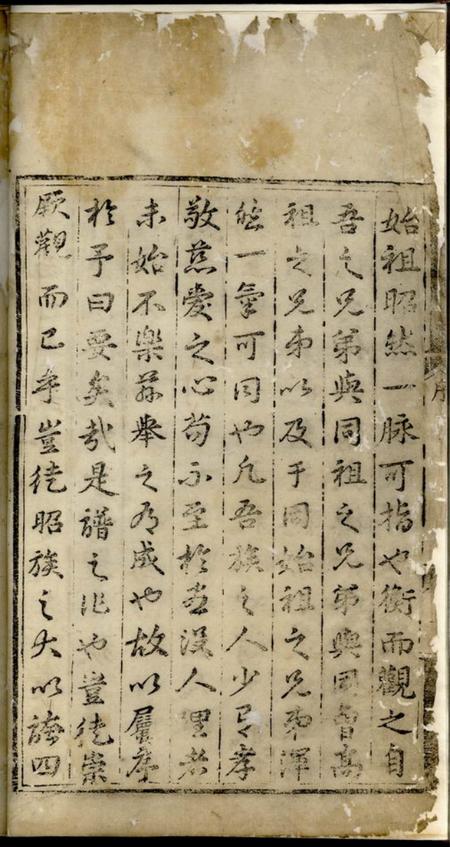 始祖昭然一脉可指也衡而觀之自
吾之兄弟與同祖之兄弟與同曾高
祖之兄弟以及于同始祖之兄弟渾
然一氣可同也凡吾族之人少有孝
敬慈愛之心苟不至於盡沒人理者
未始不樂茲舉之有成也故以屬序
於予曰要矣哉是譜之作也豈徒崇
厥觀而已乎豈徒昭族之大以誇四
序